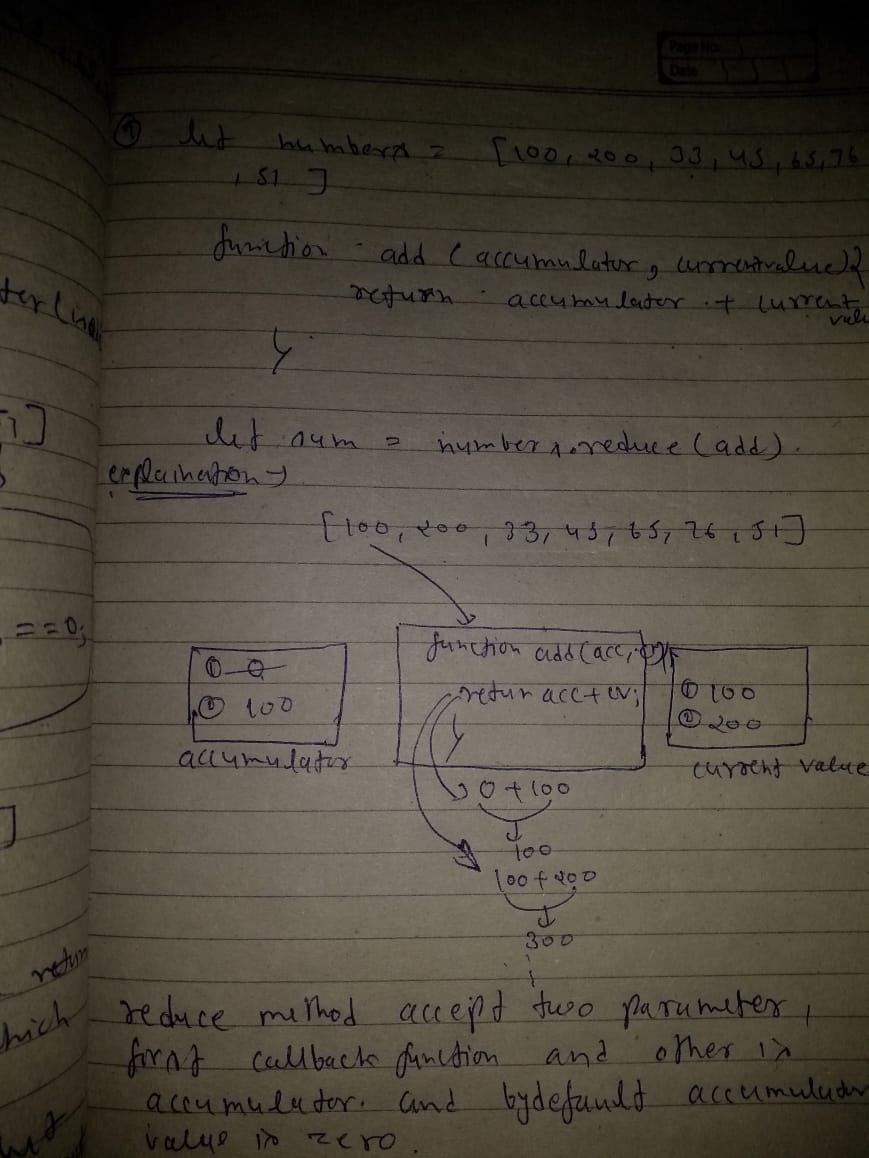 Page No.
Date
① let numbers = [100, 200, 33, 45, 65, 76
, 51 ]
function add ( accumulator, currentvalue){
return accumulator + current
value
}
let sum = numbers.reduce (add).
explaination →
[100, 200, 33, 45, 65, 76, 51]
== 0;
function add (acc, cv){
① 0
retur acc + cv;
① 100
② 100
② 200
}
accumulator
current value
0 + 100
100
100 + 200
300
return
hich
reduce method accept two parameter,
first callback function and other is
accumulator. and bydefauld accumulator
value is zero.